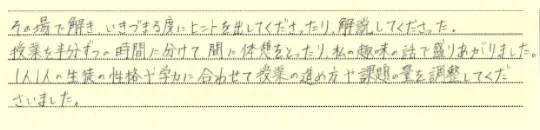 その場で解き、いきづまる度にヒントを出してくださったり、解説してくださった。
授業を半分ずつの時間に分けて間に休憩をとったり、私の趣味の話で盛りあがりました。
1人1人の生徒の性格や学力に合わせて授業の進め方や課題の量を調整してくだ
さいました。